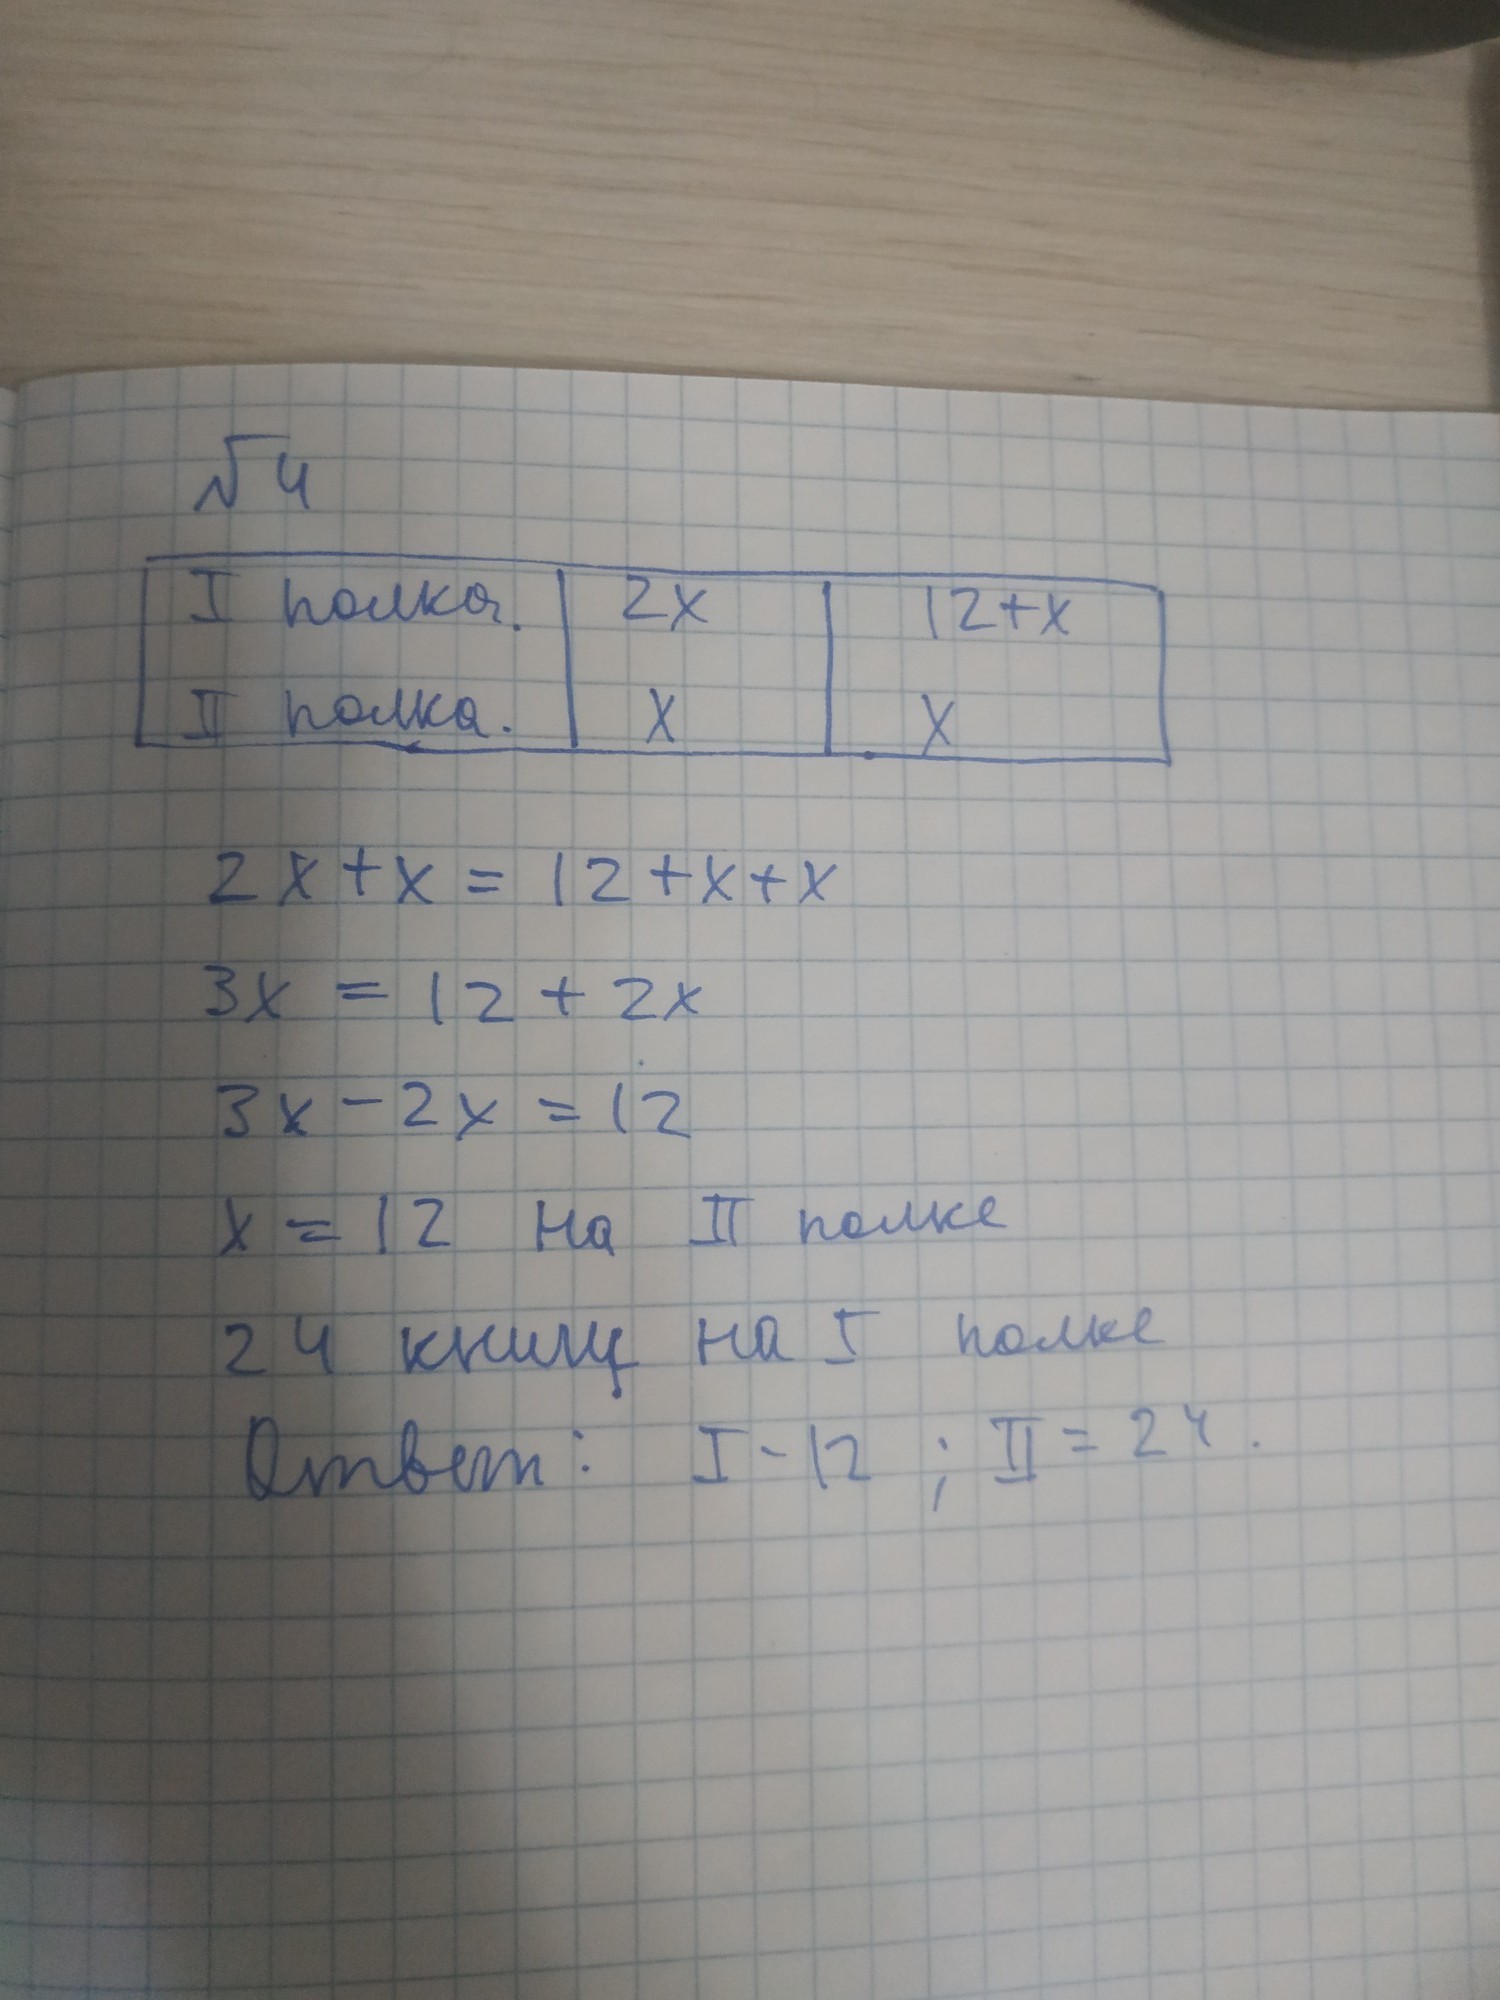 №4
I полка. 2x 12+x
II полка. x x
2x+x=12+x+x
3x=12+2x
3x-2x=12
x=12 на II полке
24 книги на I полке
Ответ: I-12; II=24.